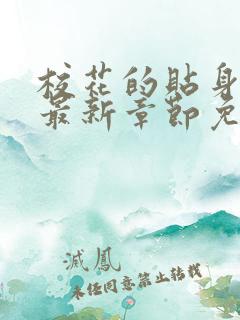 校花的贴身
最新章节免
滅鳳
未经同意禁止转载